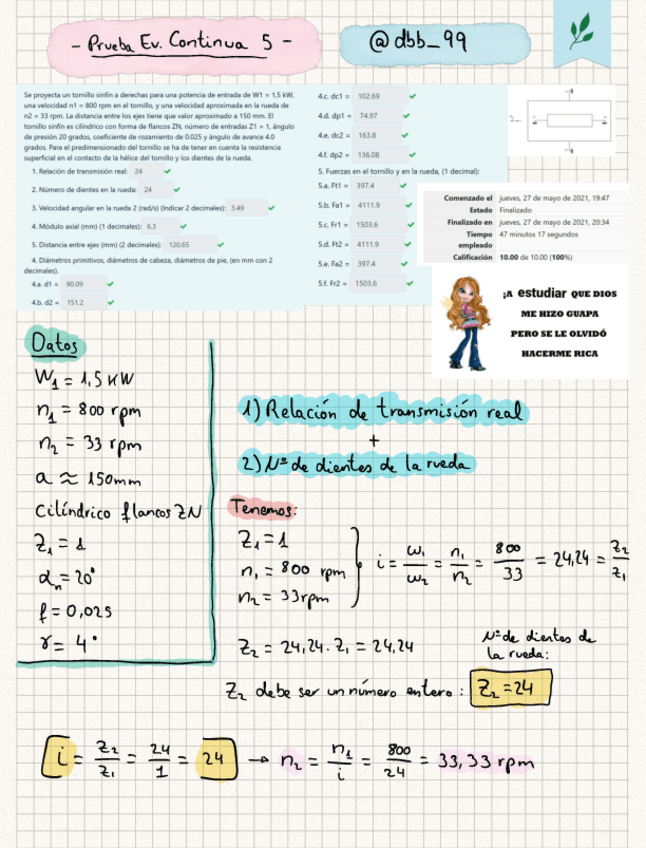 - Prueba Ev. Continua 5 -
@dbb_99
Se proyecta un tornillo sinfín a derechas para una potencia de entrada de W1 = 1,5 kW,
una velocidad n1 = 800 rpm en el tornillo, y una velocidad aproximada en la rueda de
n2 = 33 rpm. La distancia entre los ejes tiene que valor aproximado a 150 mm. El
tornillo sinfín es cilíndrico con forma de flancos ZN, número de entradas Z1 = 1, ángulo
de presión 20 grados, coeficiente de rozamiento de 0.025 y ángulo de avance 4.0
grados. Para el predimensionado del tornillo se ha de tener en cuenta la resistencia
superficial en el contacto de la hélice del tornillo y los dientes de la rueda.
1. Relación de transmisión real: 24
2. Número de dientes en la rueda: 24
3. Velocidad angular en la rueda 2 (rad/s) (Indicar 2 decimales): 3.49
4. Módulo axial (mm) (1 decimales): 6.3
5. Distancia entre ejes (mm) (2 decimales): 120.65
4. Diámetros primitivos, diámetros de cabeza, diámetros de pie, (en mm con 2
decimales).
4.a. d1 = 90.09
4.b. d2 = 151.2
4.c. dc1 = 102.69
4.d. dp1 = 74.97
4.e. dc2 = 163.8
4.f. dp2 = 136.08
5. Fuerzas en el tornillo y en la rueda, (1 decimal):
5.a. Ft1 = 397.4
5.b. Fa1 = 4111.9
5.c. Fr1 = 1503.6
5.d. Ft2 = 4111.9
5.e. Fa2 = 397.4
5.f. Fr2 = 1503.6
Comenzado el jueves, 27 de mayo de 2021, 19:47
Estado Finalizado
Finalizado en jueves, 27 de mayo de 2021, 20:34
Tiempo 47 minutos 17 segundos
empleado
Calificación 10.00 de 10.00 (100%)
¡A estudiar QUE DIOS
ME HIZO GUAPA
PERO SE LE OLVIDÓ
HACERME RICA
Datos
W1 = 1,5 KW
n1 = 800 rpm
n2 = 33 rpm
a ≈ 150mm
Cilíndrico flancos ZN
Z1 = 1
αn = 20°
f = 0,025
γ = 4°
1) Relación de transmisión real
+
2) Nº de dientes de la rueda
Tenemos:
Z1 = 1
n1 = 800 rpm
n2 = 33rpm
i = ω1/ω2 = n1/n2 = 800/33 = 24,24 = Z2/Z1
Z2 = 24,24 · Z1 = 24,24
Nº de dientes de
la rueda:
Z2 debe ser un número entero: Z2 = 24
i = Z2/Z1 = 24/1 = 24 → n2 = n1/i = 800/24 = 33,33 rpm